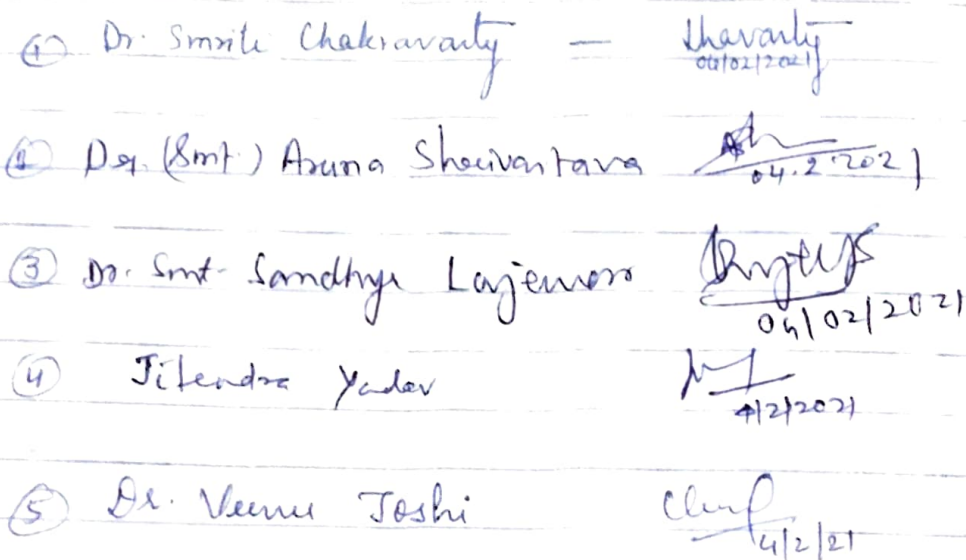 ① Dr. Smriti Chakravarty — 04/02/2021
② Dr. (Smt.) Aruna Shrivastava 04.2.2021
③ Dr. Smt. Sandhya 04/02/2021
④ Jitendra Yadav 4/2/2021
⑤ Dr. Veenu Joshi 4/2/21